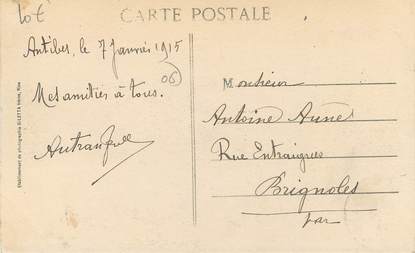 Lot
CARTE POSTALE
Antibes, le 7 Janvier 1915
06
Mes amitiés à tous.
Monsieur
Antoine Aune
Rue Entraigues
Brignoles
Var
Etablissement de photographie GILETTA frères, Nice